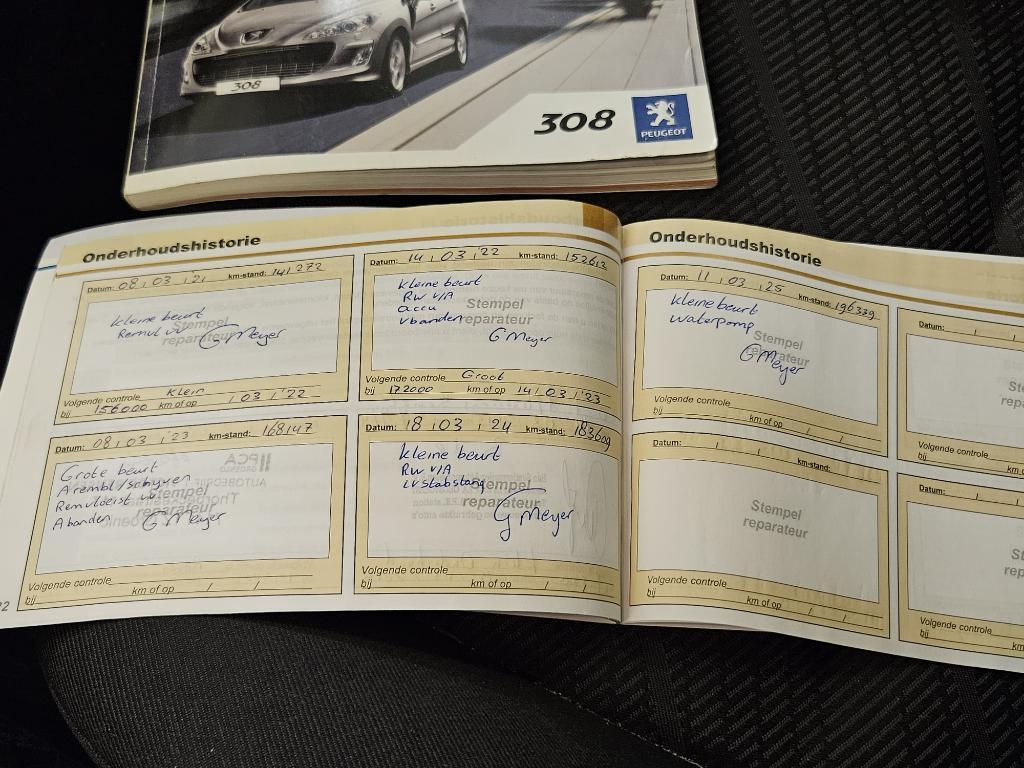 308
308
PEUGEOT
Onderhoudshistorie
Datum: 08 / 03 / '21 km-stand: 141 272
Kleine beurt
Remvl vv
Stempel
reparateur
G Meyer
Volgende controle Klein
bij 156000 km of op / 03 / '22
Datum: 14 / 03 / '22 km-stand: 152612
Kleine beurt
RW V/A
accu
Vbanden
Stempel
reparateur
G Meyer
Volgende controle Groot
bij 172000 km of op 14 / 03 / '23
Datum: 08 / 03 / '23 km-stand: 168147
Grote beurt
Arembl/schijven
Remvloeist vv
Abanden
Stempel
reparateur
G Meyer
Volgende controle
bij km of op / /
Datum: 18 / 03 / 24 km-stand: 183609
Kleine beurt
RW V/A
LV Stabstang
Stempel
reparateur
G Meyer
Volgende controle
bij km of op / /
Onderhoudshistorie
Datum: 11 / 03 / 25 km-stand: 196379
Kleine beurt
Waterpomp
Stempel
reparateur
G Meyer
Volgende controle
bij km of op / /
Datum: / / km-stand:
Stempel
reparateur
Volgende controle
bij km of op / /
Datum: / /
Volgende controle
bij km
Datum: / /
Volgende controle
bij km